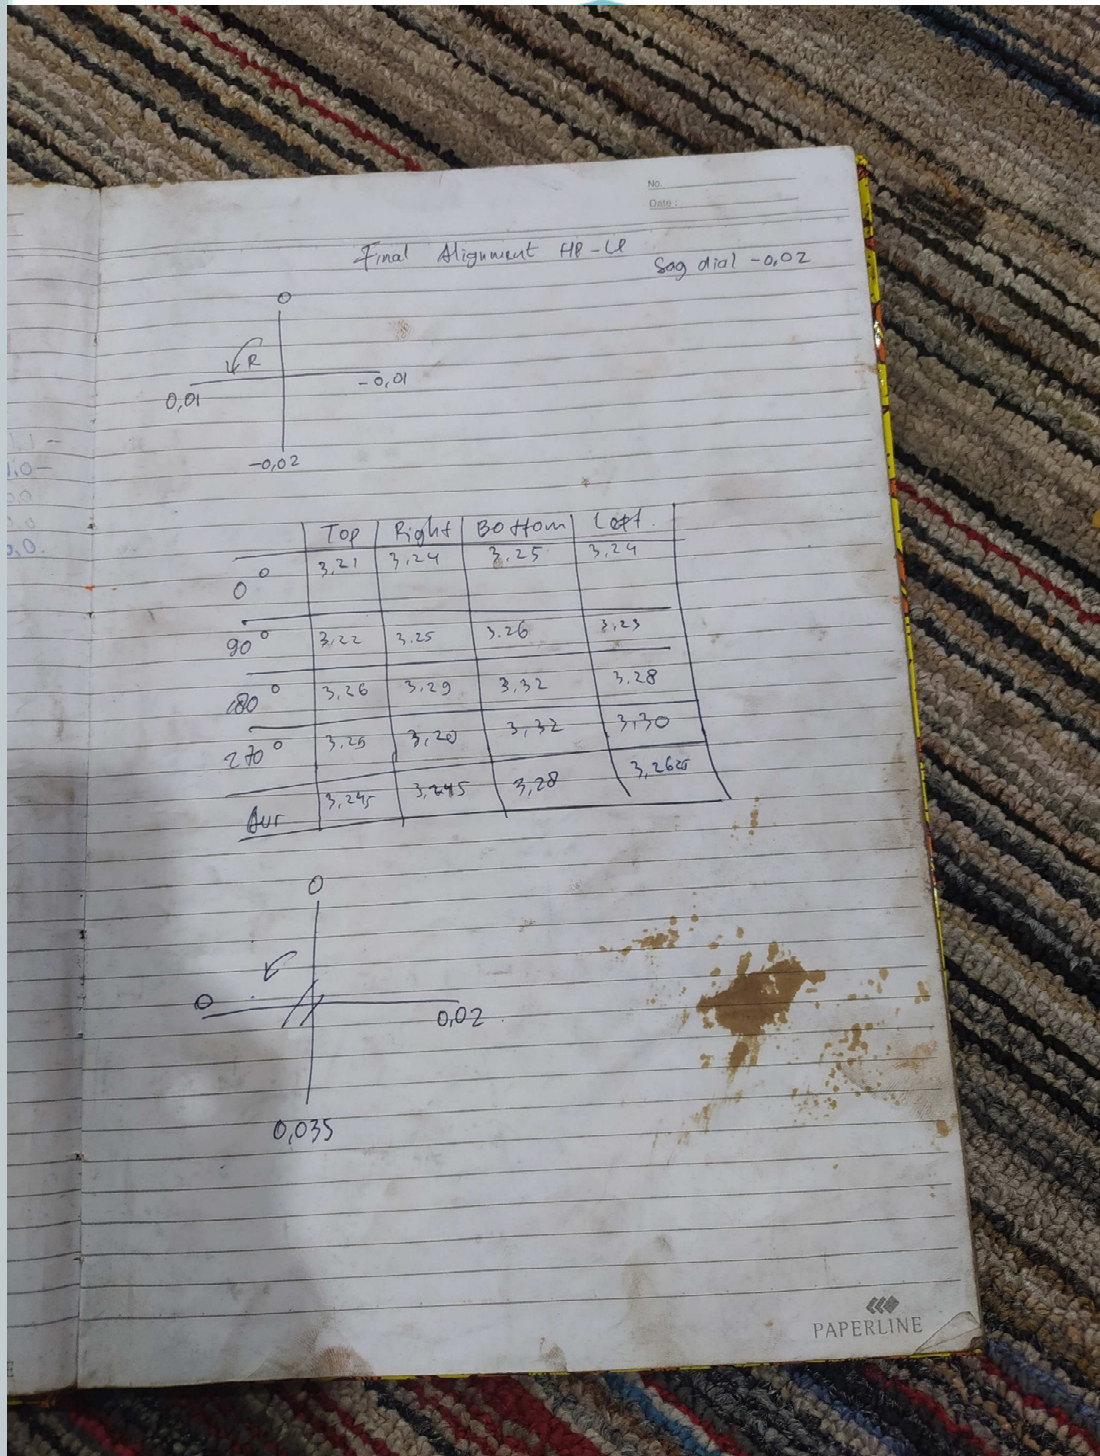 No.
Date :
Final Alignment HP-LP
Sag dial -0,02
0
R
0,01 -0,01
-0,02
Top Right Bottom Left
0° 3,21 3,24 3,25 3,24
90° 3,22 3,25 3.26 3,23
180° 3,26 3,29 3,32 3.28
270° 3,20 3,32 3,30
3,245 3,245 3,28 3,2625
0
0 0,02
0,035
PAPERLINE